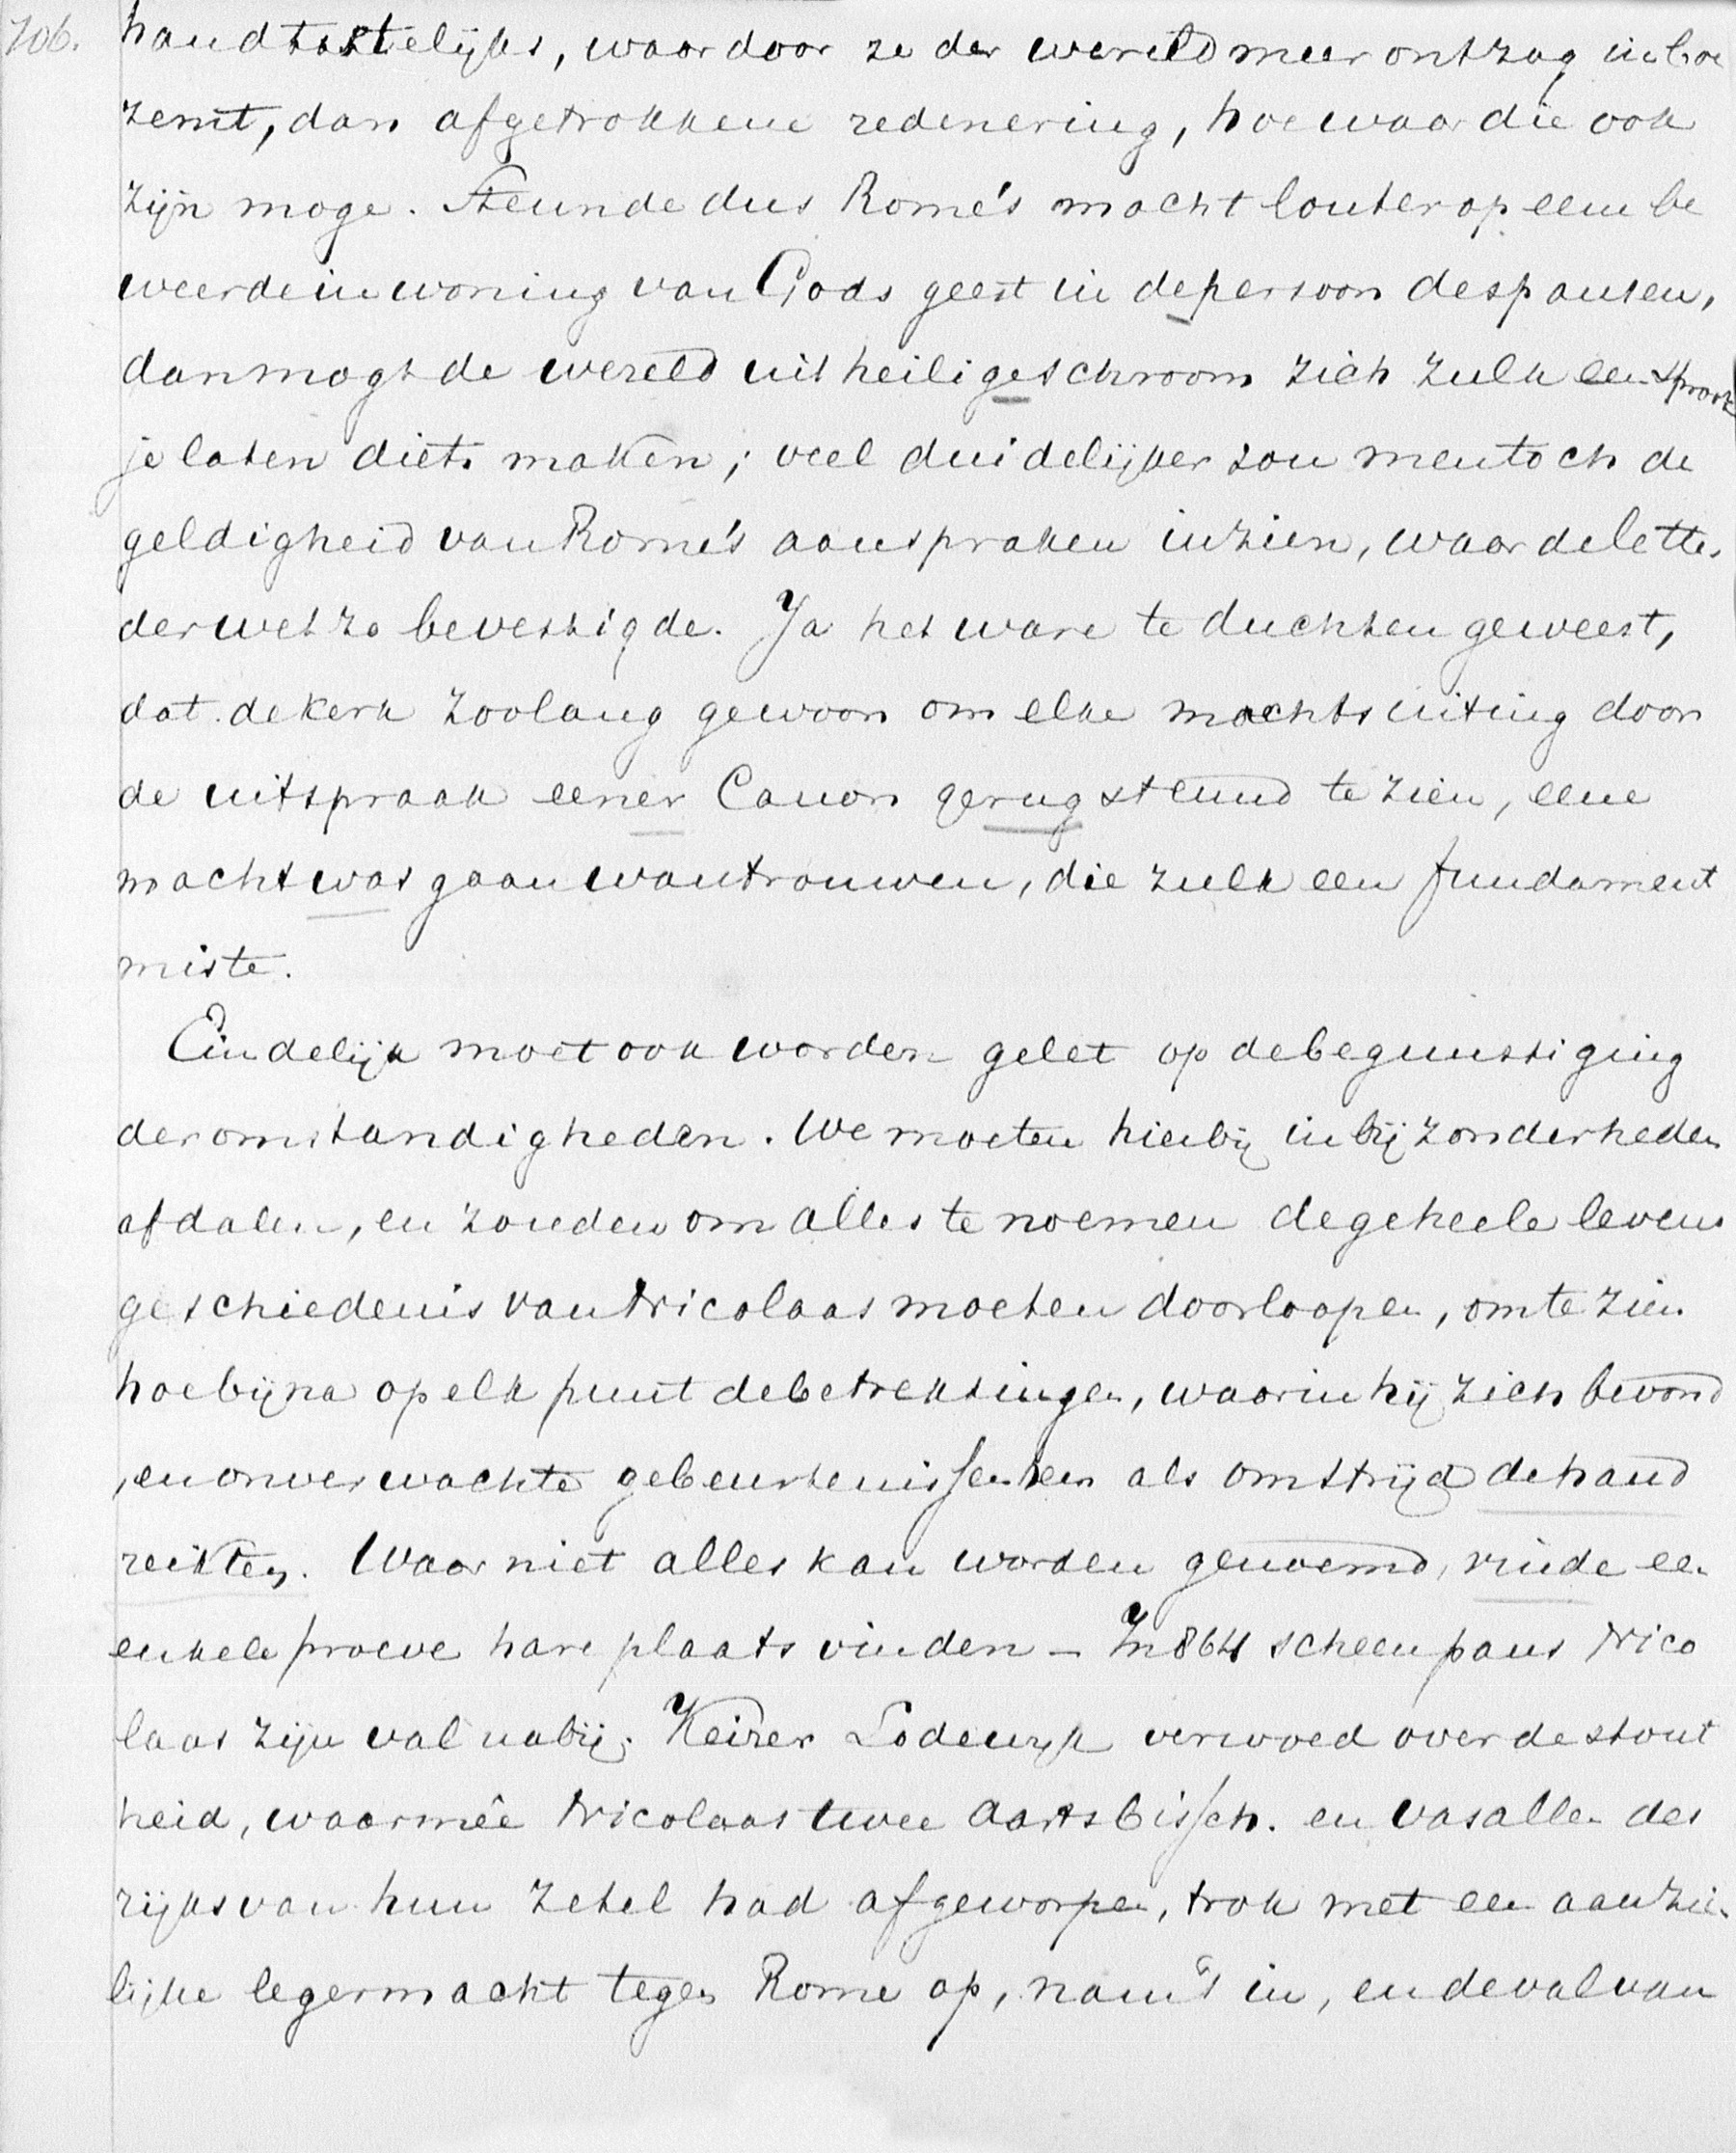 706. handtastelijks, waardoor ze der wereld meer ontzag inboe
zemt, dan afgetrokkene redenering, hoe waar die ook
zijn moge. Steunde dus Rome's macht louter op eene be
weerde inwoning van Gods geest in de persoon des pausen,
dan mogt de wereld uit heilige schroom zich zulk een sprook
je laten diets maken; veel duidelijker zou men toch de
geldigheid van Rome's aanspraken inzien, waar de letter
der wet ze bevestigde. Ja het ware te duchten geweest,
dat de kerk zoolang gewoon om elke machtsuiting door
de uitspraak eener Canon gerugsteund te zien, eene
macht was gaan wantrouwen, die zulk een fundament
miste.
Eindelijk moet ook worden gelet op de begunstiging
der omstandigheden. We moeten hierbij in bijzonderheden
afdalen, en zouden om alles te noemen de geheele levens
geschiedenis van Nicolaas moeten doorloopen, om te zien
hoe bijna op elk punt de betrekkingen, waarin hij zich bevond
, en onverwachte gebeurtenissen hem als om strijd de hand
reikten. Waar niet alles kan worden genoemd, vinde een
enkele proeve hare plaats vinden – In 864 scheen paus Nico
laas zijn val nabij. Keizer Lodewijk verwoed over de stout
heid, waarmêe Nicolaas twee aartsbissch. en vasallen des
rijks van hun zetel had afgeworpen, trok met een aanzien
lijke legermacht tegen Rome op, nam 't in, en de val van